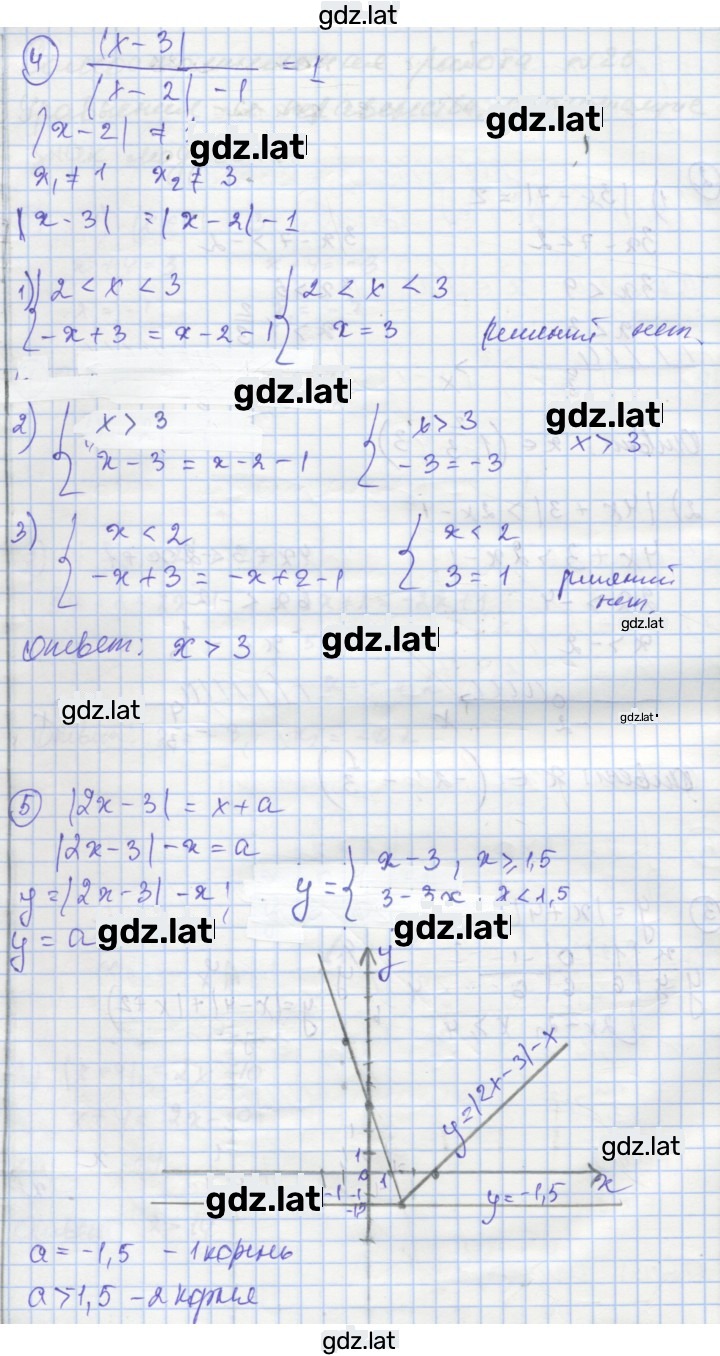 gdz.lat
4 |x-3| / |x-2| -1 = 1
gdz.lat
|x-2| ≠
gdz.lat
x₁ ≠ 1 x₂ ≠ 3
|x-3| = |x-2| -1
1) { 2 < x < 3 { 2 < x < 3
-x+3 = x-2-1 x = 3 решений нет.
gdz.lat
gdz.lat
2) { x > 3 { x > 3
x-3 = x-2-1 -3 = -3 x > 3
3) { x < 2 { x < 2
-x+3 = -x+2-1 3 = 1 решений нет.
gdz.lat
Ответ: x > 3 gdz.lat
gdz.lat
gdz.lat
5 |2x-3| = x+a
|2x-3| - x = a
y = |2x-3| - x; y = { x-3, x ≥ 1,5
3-3x. x < 1,5
y = a gdz.lat gdz.lat
y
y=|2x-3|-x
gdz.lat
1
-1 0 1 x
-1
-1,5 y = -1,5
gdz.lat
a = -1,5 - 1 корень
a > 1,5 - 2 корня
gdz.lat